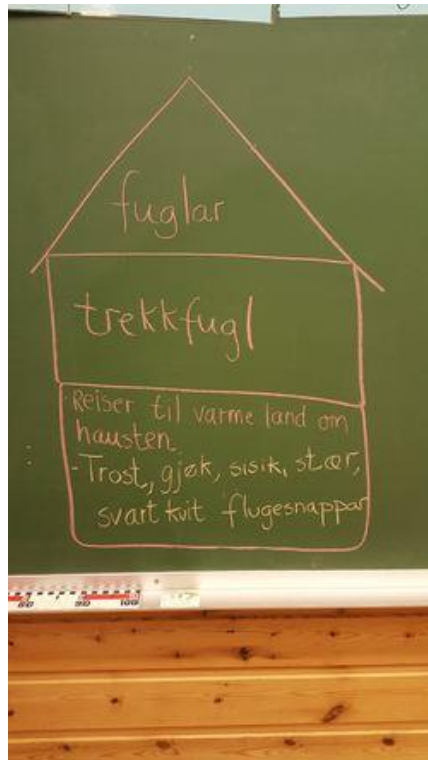 fuglar
trekkfugl
- Reiser til varme land om
hausten.
- Trost, gjøk, sisik, stær,
svart kvit flugesnappar
80 90 100